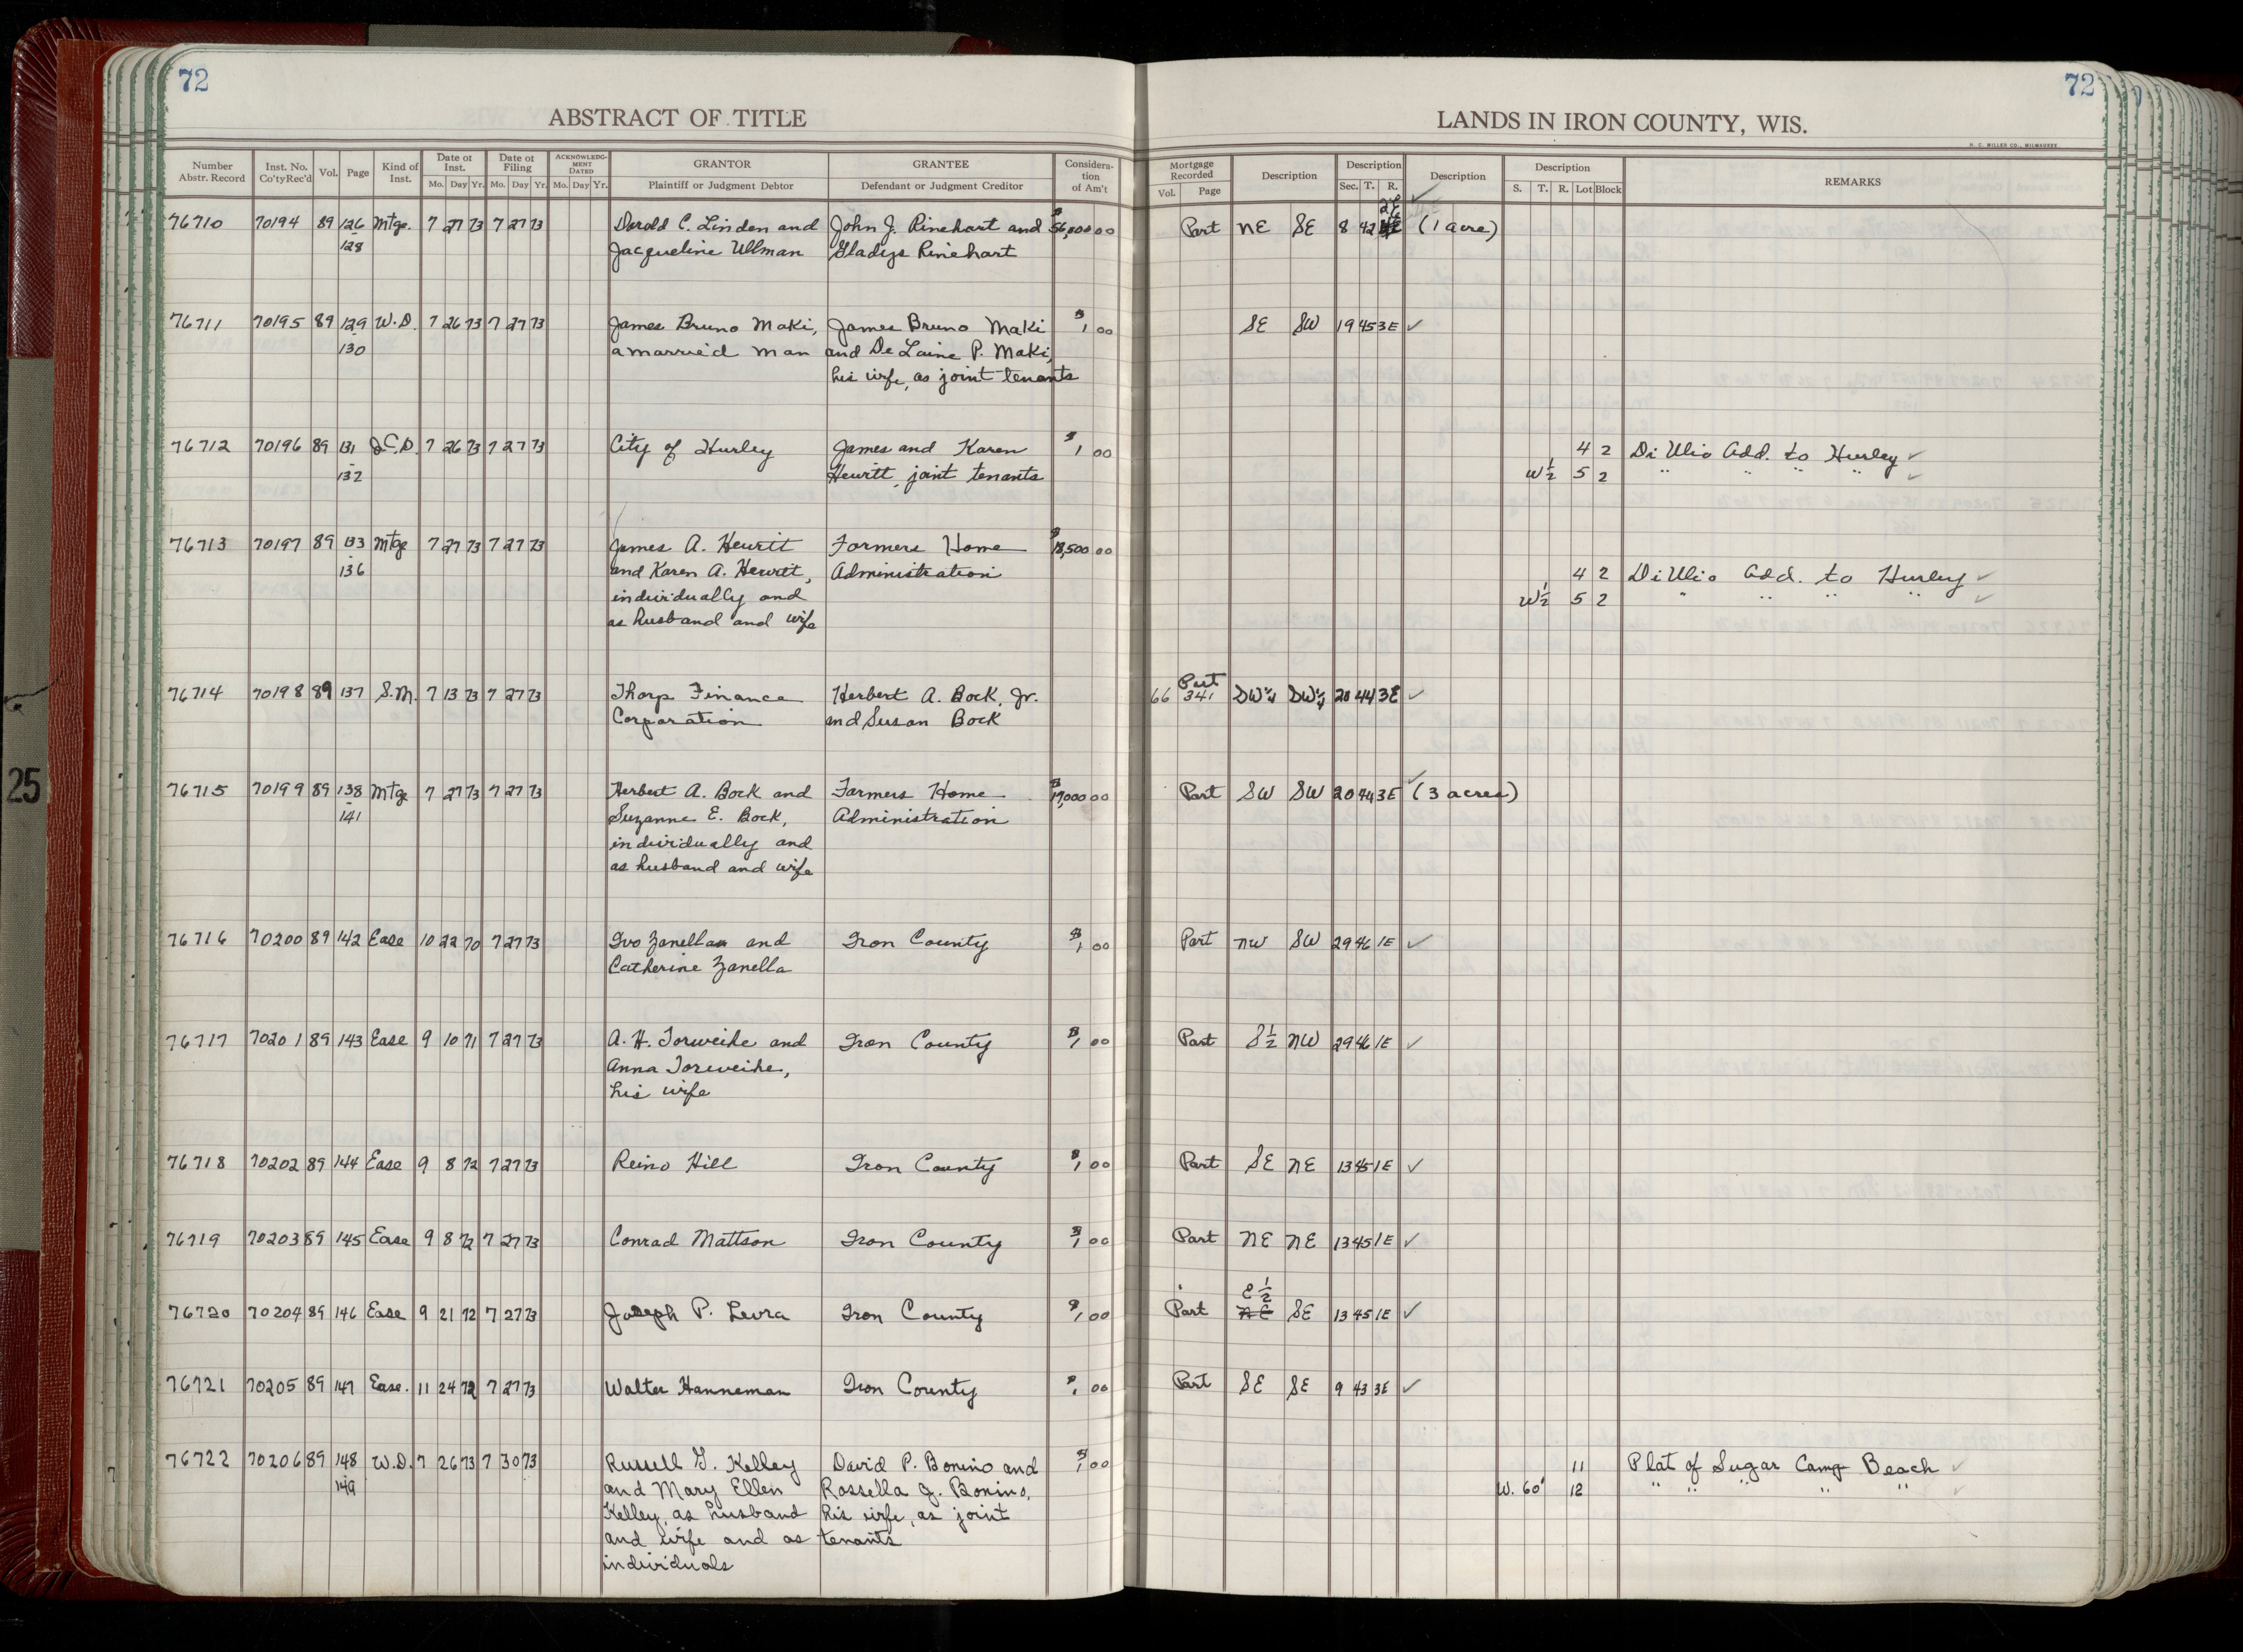 72
72
ABSTRACT OF TITLE
LANDS IN IRON COUNTY, WIS.
H. C. MILLER CO., MILWAUKEE
Number Abstr. Record Inst. No. Co'ty Rec'd Vol. Page Kind of Inst. Date of Inst. Mo. Day Yr. Date of Filing Mo. Day Yr. ACKNOWLEDGMENT DATED Mo. Day Yr. GRANTOR Plaintiff or Judgment Debtor GRANTEE Defendant or Judgment Creditor Consideration of Am't Mortgage Recorded Vol. Page Description Description Sec. T. R. Description Description S. T. R. Lot Block REMARKS
2E
76710 70194 89 126 Mtge. 7 27 73 7 27 73 Derold C. Linden and John J. Rinehart and $56,000 00 Part NE SE 8 42 (1 acre)
-128 Jacqueline Ullman Gladys Rinehart
76711 70195 89 129 W.D. 7 26 73 7 27 73 James Bruno Maki, James Bruno Maki $1 00 SE SW 19 45 3E ✓
130 a married man and De Laine P. Maki,
his wife, as joint tenants
76712 70196 89 131 Q.C.D. 7 26 73 7 27 73 City of Hurley James and Karen $1 00 4 2 Di Ulio Add. to Hurley ✓
-132 Hewitt, joint tenants W½ 5 2 " " " " ✓
76713 70197 89 133 Mtge 7 27 73 7 27 73 James A. Hewitt Farmers Home $18,500 00
-136 and Karen A. Hewitt, Administration 4 2 Di Ulio Add. to Hurley ✓
individually and W½ 5 2 " " " " ✓
as husband and wife
Part
76714 70198 89 137 S.M. 7 13 73 7 27 73 Thorp Finance Herbert A. Bock, Jr. 66 341 SW¼ SW¼ 20 44 3E ✓
Corporation and Susan Bock
76715 70199 89 138 Mtge 7 27 73 7 27 73 Herbert A. Bock and Farmers Home $17,000 00 Part SW SW 20 44 3E ✓ (3 acres)
-141 Suzanne E. Bock, Administration
individually and
as husband and wife
76716 70200 89 142 Ease 10 22 70 7 27 73 Ivo Zanella and Iron County $1 00 Part NW SW 29 46 1E ✓
Catherine Zanella
76717 70201 89 143 Ease 9 10 71 7 27 73 A. H. Torweihe and Iron County $1 00 Part S½ NW 29 46 1E ✓
Anna Torweihe,
his wife
76718 70202 89 144 Ease 9 8 72 7 27 73 Reino Hill Iron County $1 00 Part SE NE 13 45 1E ✓
76719 70203 89 145 Ease 9 8 72 7 27 73 Conrad Mattson Iron County $1 00 Part NE NE 13 45 1E ✓
E½
76720 70204 89 146 Ease 9 21 72 7 27 73 Joseph P. Levra Iron County $1 00 Part NE SE 13 45 1E ✓
76721 70205 89 147 Ease. 11 24 72 7 27 73 Walter Hanneman Iron County $1 00 Part SE SE 9 43 3E ✓
76722 70206 89 148 W.D. 7 26 73 7 30 73 Russell G. Kelley David P. Bonino and $1 00 11 Plat of Sugar Camp Beach ✓
-149 and Mary Ellen Rossella J. Bonino, W. 60' 12 " " " " " ✓
Kelley, as husband his wife, as joint
and wife and as tenants
individuals
25